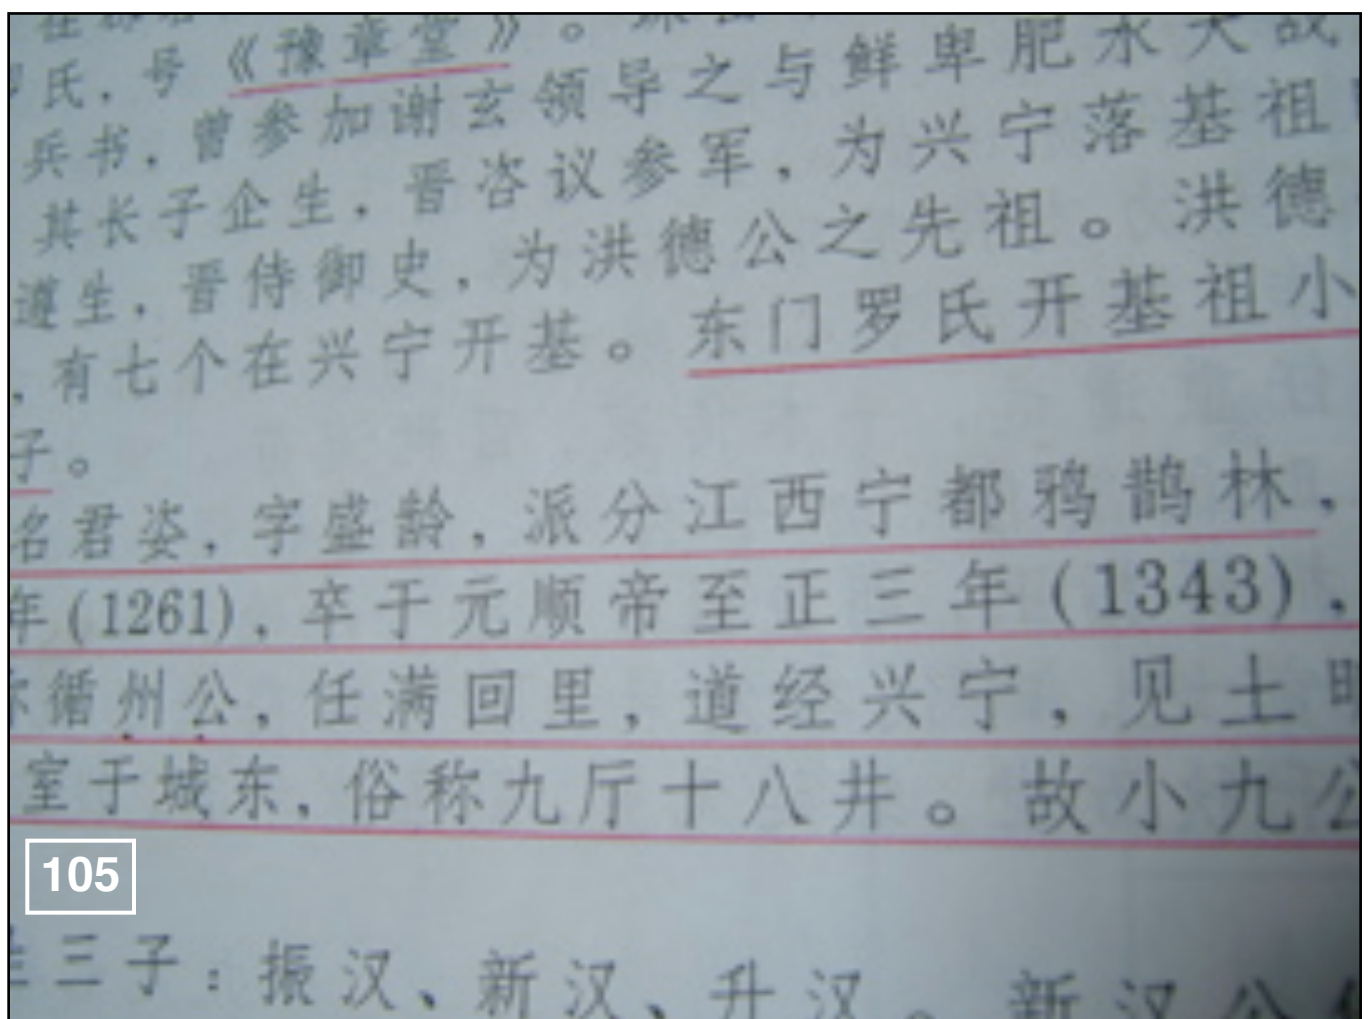 氏，号《豫章堂》。
兵书，曾参加谢玄领导之与鲜卑肥水大战
其长子企生，晋咨议参军，为兴宁落基祖
遵生，晋侍御史，为洪德公之先祖。洪德
，有七个在兴宁开基。东门罗氏开基祖小
子。
名君姿，字盛龄，派分江西宁都鸦鹊林，
年(1261)，卒于元顺帝至正三年(1343)，
循州公，任满回里，道经兴宁，见土
室于城东，俗称九厅十八井。故小九公
105
三子：振汉、新汉、升汉。新汉公